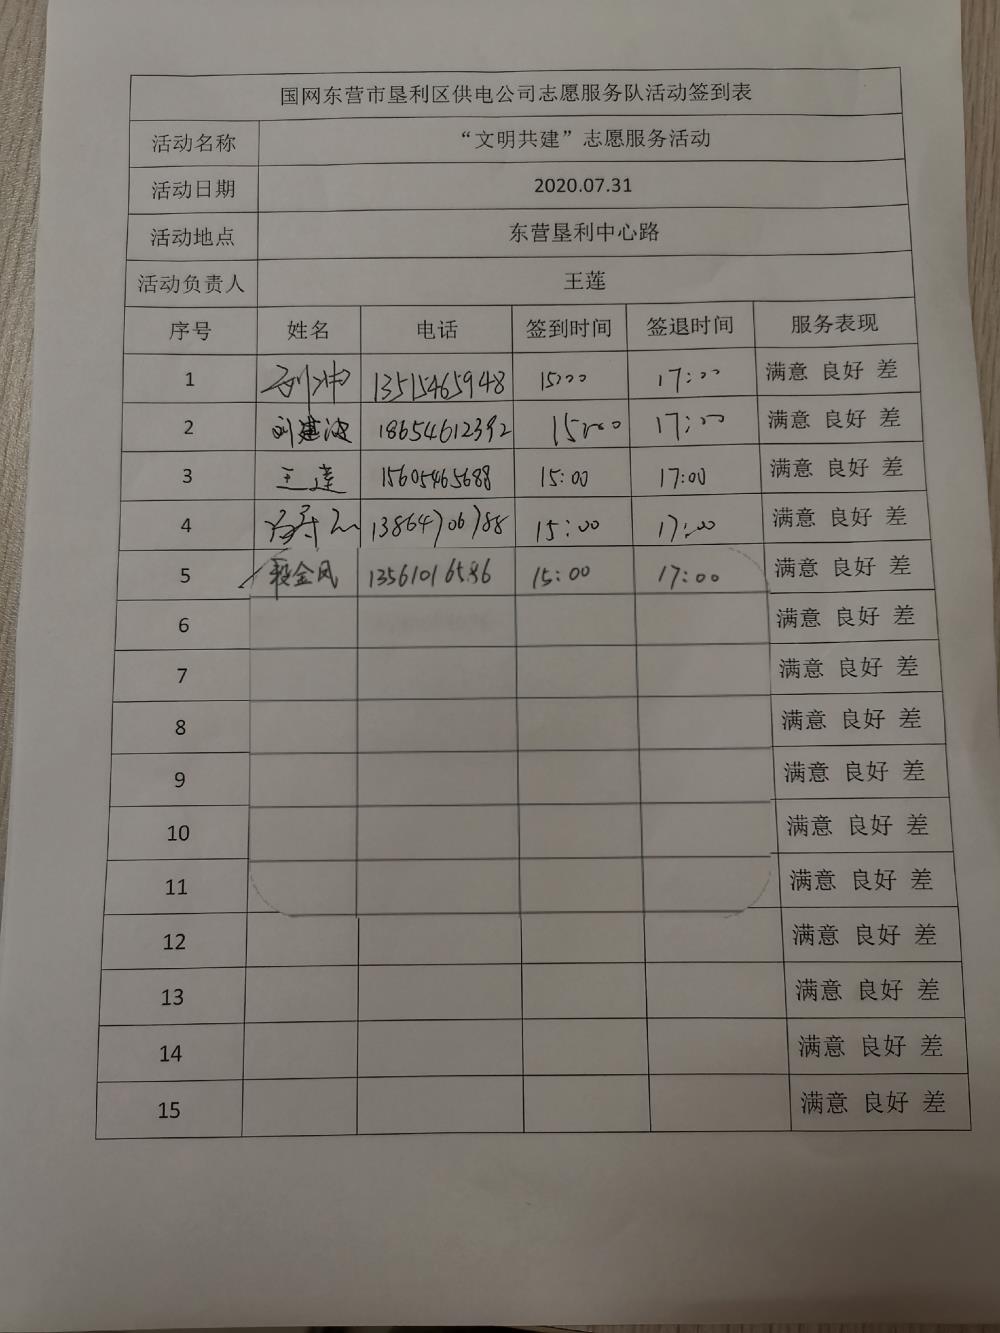 国网东营市垦利区供电公司志愿服务队活动签到表
活动名称 “文明共建”志愿服务活动
活动日期 2020.07.31
活动地点 东营垦利中心路
活动负责人 王莲
序号 姓名 电话 签到时间 签退时间 服务表现
1 13515465948 15:00 17:00 满意 良好 差
2 刘建波 18654612392 15:00 17:00 满意 良好 差
3 王莲 15605465688 15:00 17:00 满意 良好 差
4 13864706788 15:00 17:00 满意 良好 差
5 殷金凤 13561016586 15:00 17:00 满意 良好 差
6 满意 良好 差
7 满意 良好 差
8 满意 良好 差
9 满意 良好 差
10 满意 良好 差
11 满意 良好 差
12 满意 良好 差
13 满意 良好 差
14 满意 良好 差
15 满意 良好 差